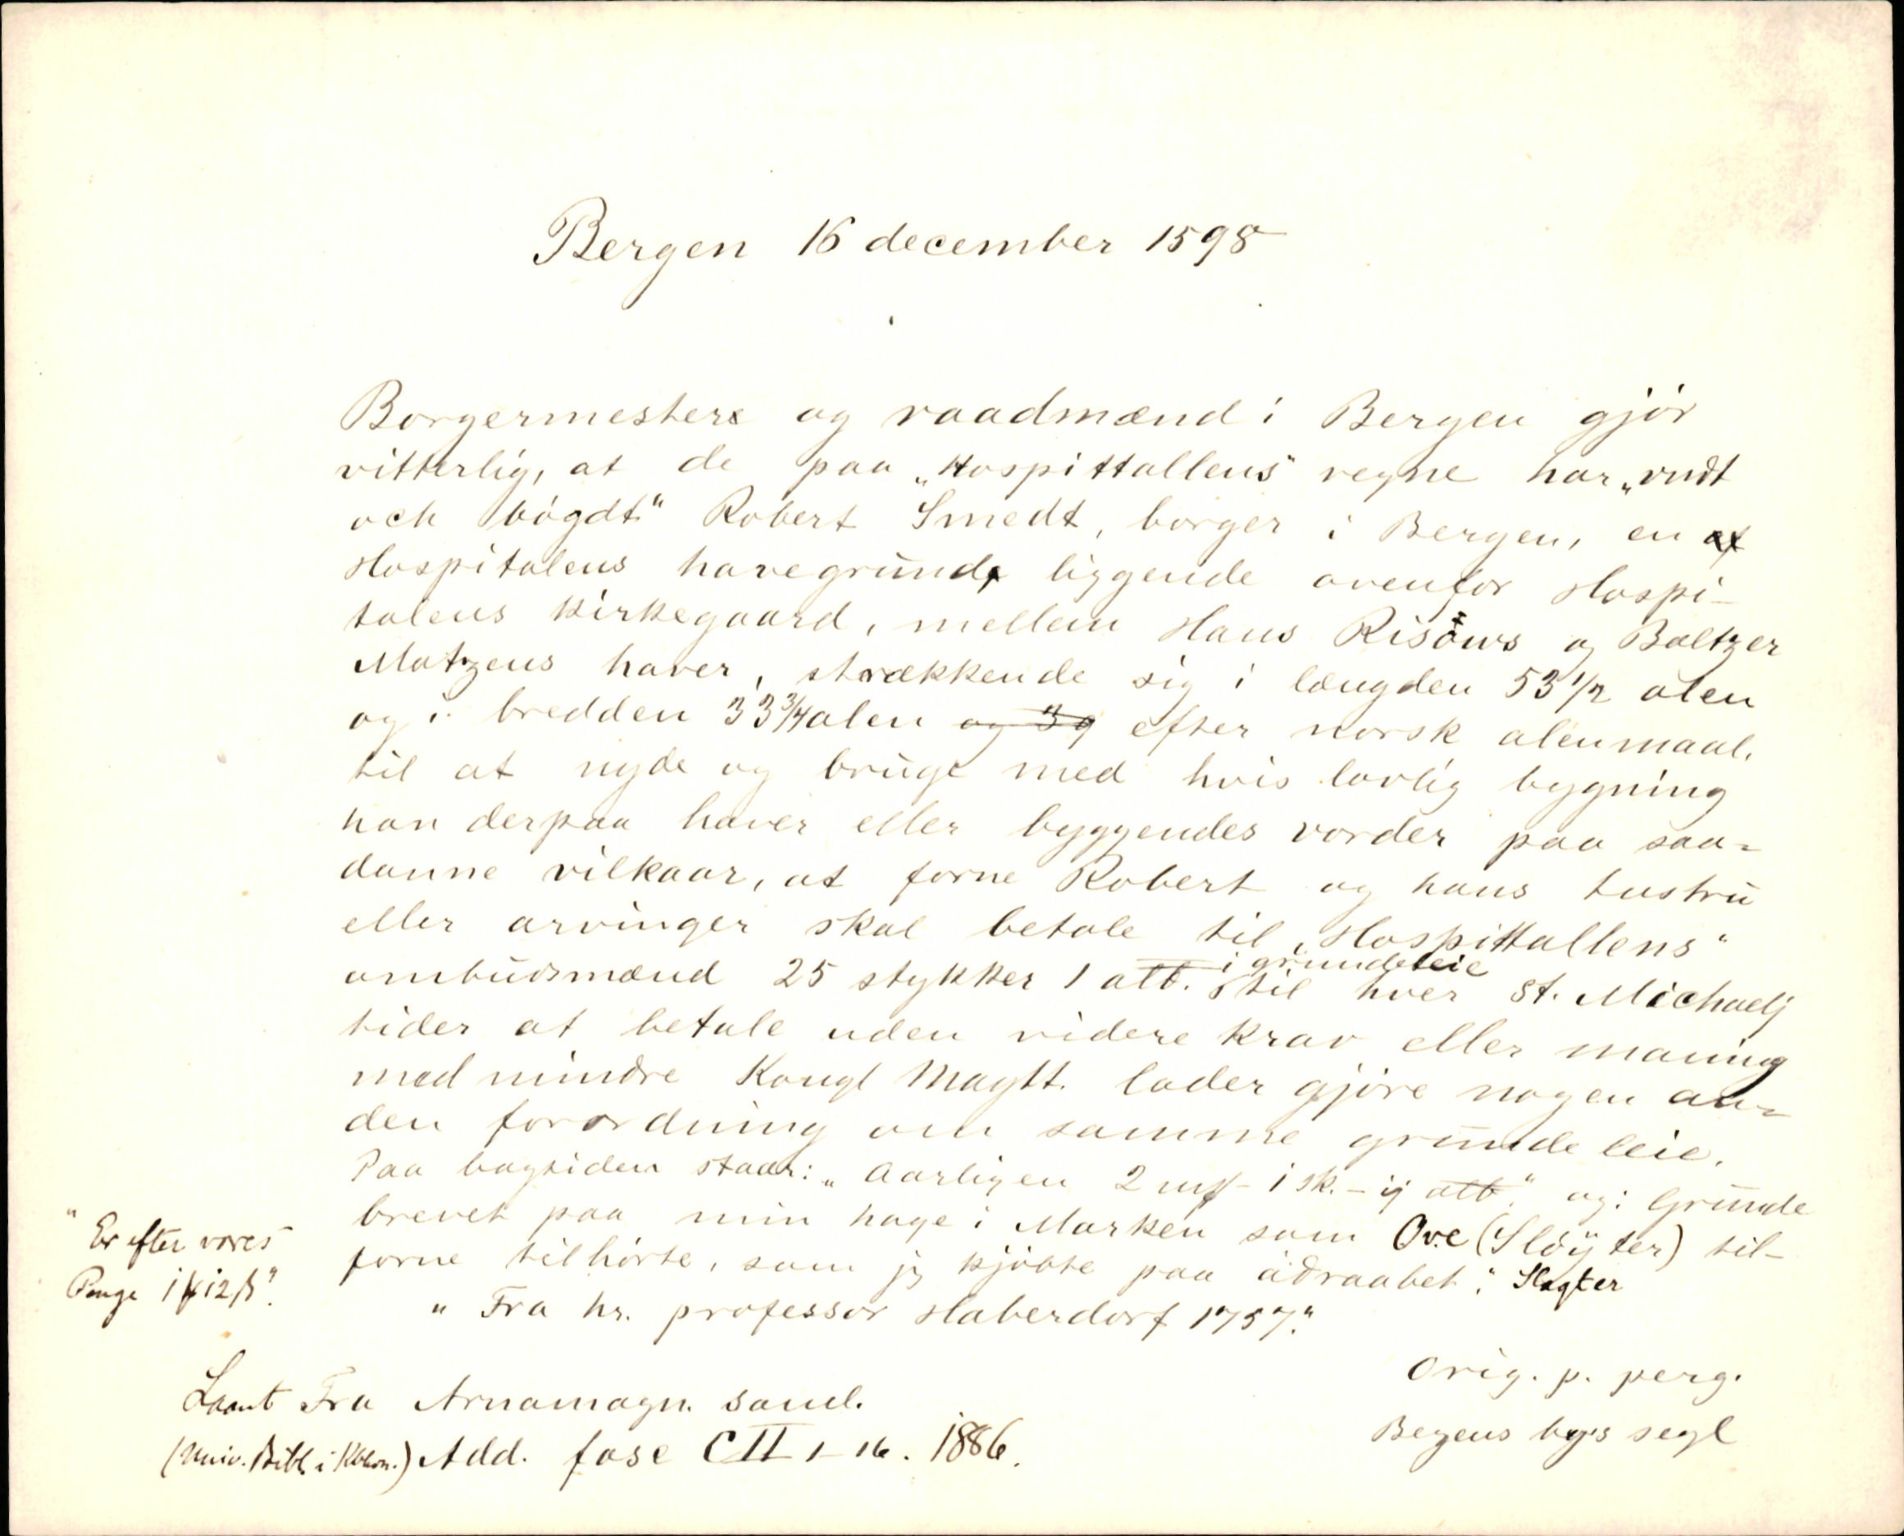 Bergen 16 december 1598
Borgermestere og raadmænd i Bergen gjör
vitterlig, at de paa „Hospittallens" vegne har „vndt
och bögdt" Robert Smedt, borger i Bergen, en af
Hospitalens havegrund, liggende ovenfor Hospi-
talens kirkegaard, mellem Hans Risöws og Baltzer
Matzens haver, strækkende sig i længden 53 1/2 alen
og i bredden 33 3/4 alen og 39 efter norsk alenmaal,
til at nyde og bruge med hvis lovlig bygning
han derpaa haver eller byggendes vorder paa saa-
danne vilkaar, at forne Robert og hans hustru
eller arvinger skal betale til „Hospittallens"
ombudsmænd 25 stykker 1 alb. i grundeleie til hver St. Michaelj
tider at betale uden videre krav eller maning
med mindre Kongl Maytt. lader gjöre nogen an-
den forordning om samme grundeleie.
Paa bagsiden staar: „Aarligen 2 mk - 1 sk. - ij alb." og: Grunde
brevet paa min hage i Marken som Ove (Slöyter) til-
forne tilhörte, som jeg kjöbte paa adraabet". Slagter
"Er efter vores
Penge 1 12 ß".
" Fra hr. professor Haberdorf 1757."
Laant Fra Arnamagn. saml.
(Univ. Bibl. i Kbhvn.) Add. fasc CII 1-16. 1886.
Orig. p. perg.
Begens bys segl